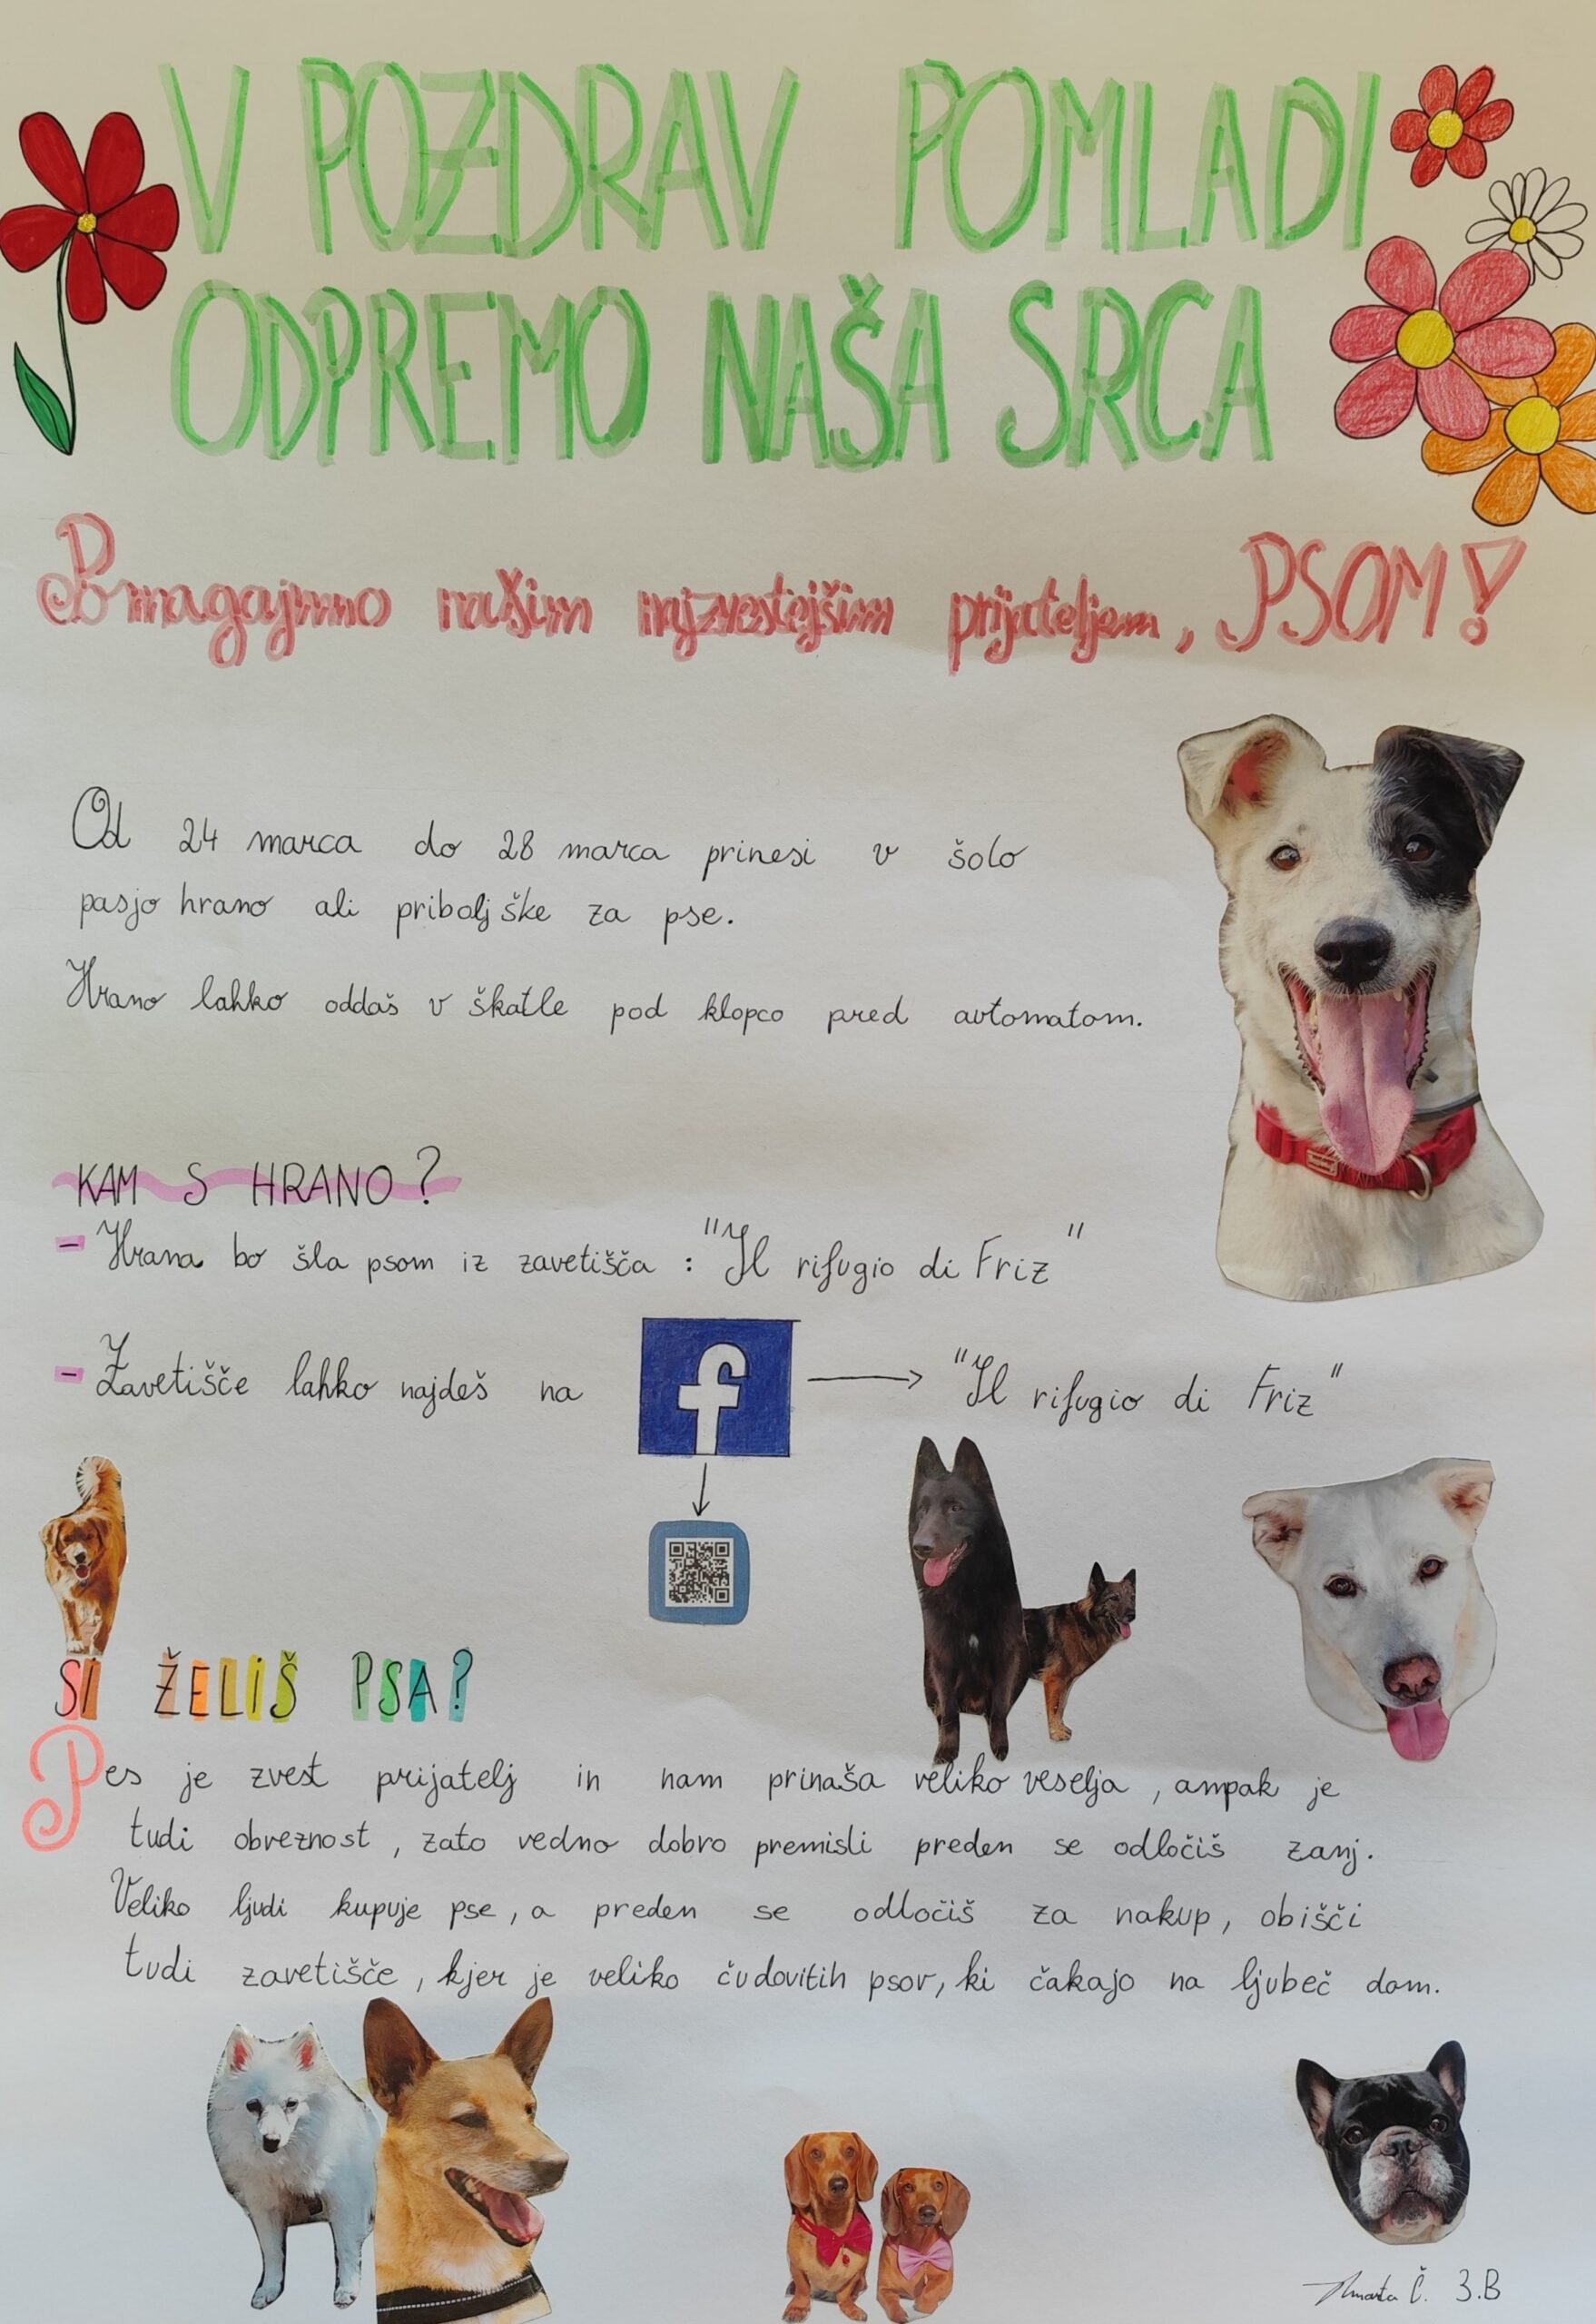 V POZDRAV POMLADI
ODPREMO NAŠA SRCA
Pomagajmo našim najzvestejšim prijateljem, PSOM!
Od 24 marca do 28 marca prinesi v šolo
pasjo hrano ali priboljške za pse.
Hrano lahko oddaš v škatle pod klopco pred avtomatom.
KAM S HRANO?
- Hrana bo šla psom iz zavetišča : "Il rifugio di Friz"
- Zavetišče lahko najdeš na f → "Il rifugio di Friz"
SI ŽELIŠ PSA?
Pes je zvest prijatelj in nam prinaša veliko veselja, ampak je
tudi obveznost, zato vedno dobro premisli preden se odločiš zanj.
Veliko ljudi kupuje pse, a preden se odločiš za nakup, obišči
tudi zavetišče, kjer je veliko čudovitih psov, ki čakajo na ljubeč dom.
Č. 3.B